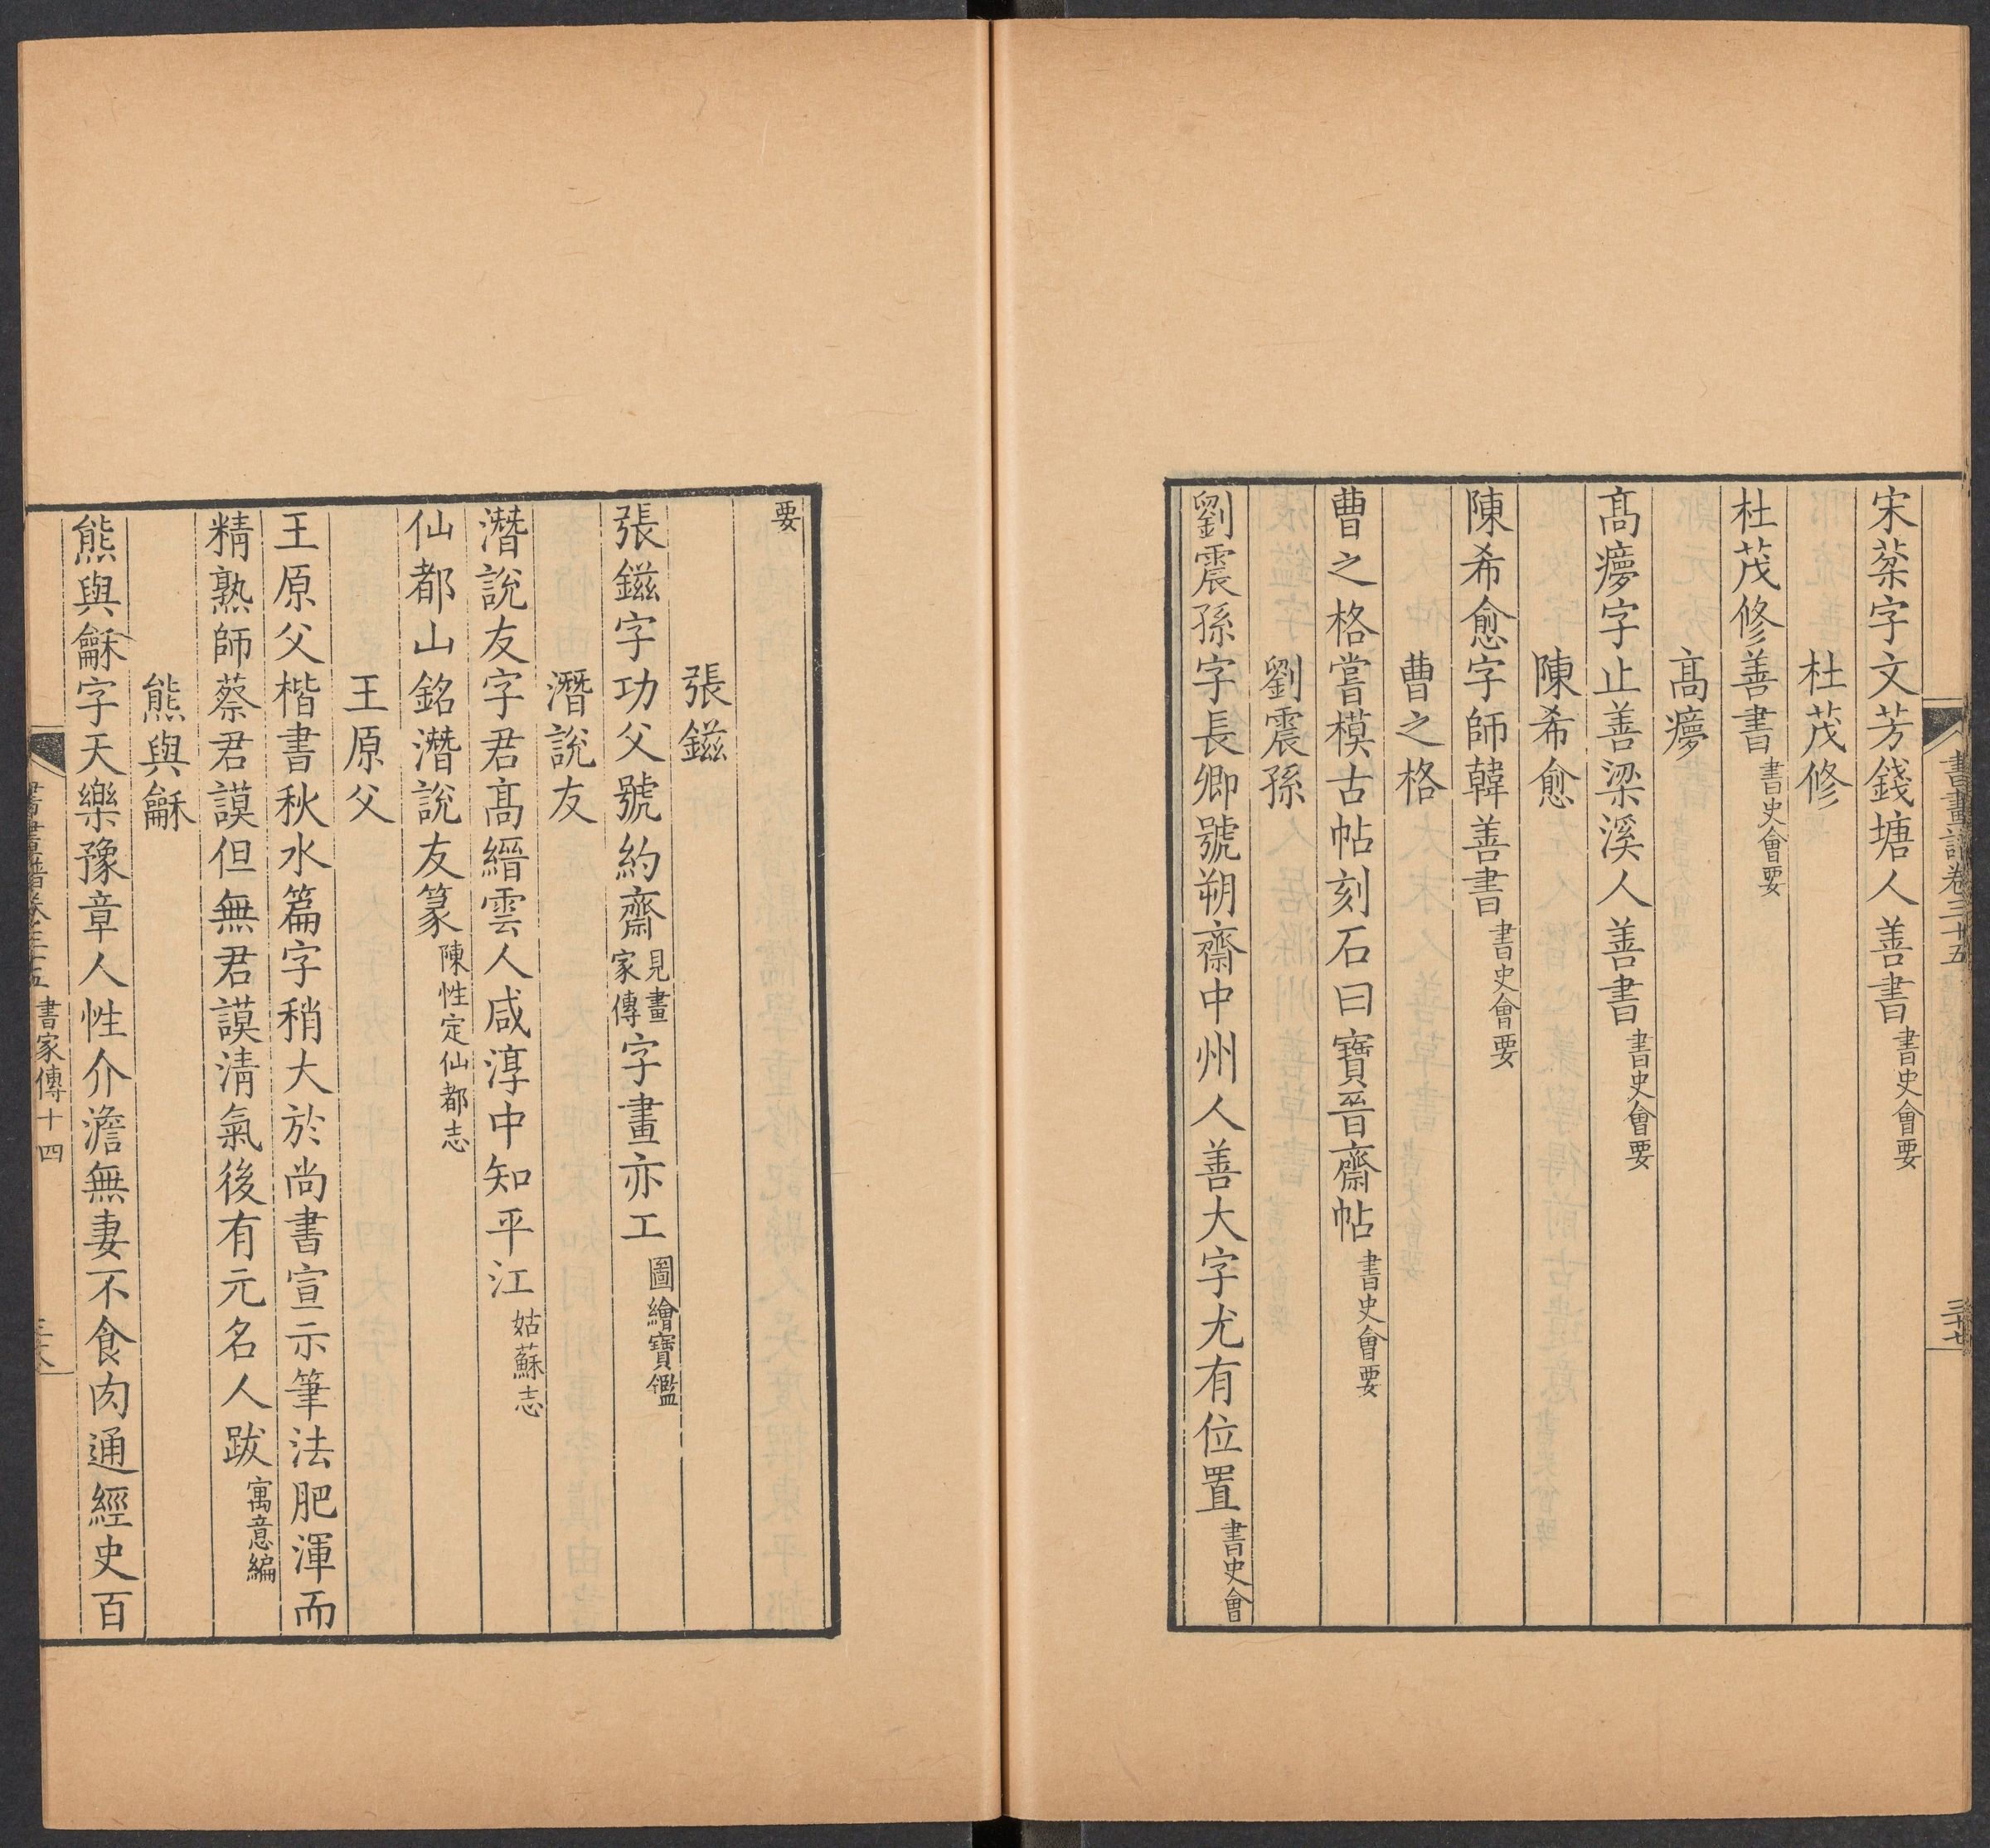 書畫譜卷三十五
三十七
宋蔾字文芳錢塘人善書書史會要
杜茂修
杜茂修善書書史會要
髙㾕
髙㾕字止善梁溪人善書書史會要
陳希愈
陳希愈字師韓善書書史會要
曹之格
曹之格嘗模古帖刻石曰寶晉齋帖書史會要
劉震孫
劉震孫字長卿號朔齋中州人善大字尤有位置書史會
要
張鎡
張鎡字功父號約齋見畫家傳字畫亦工圖繪寶鑑
潛說友
潛說友字君髙縉雲人咸淳中知平江姑蘇志
仙都山銘潛說友篆陳性定仙都志
王原父
王原父楷書秋水篇字稍大於尚書宣示筆法肥渾而
精熟師蔡君謨但無君謨清氣後有元名人跋寓意編
熊與龢
熊與龢字天樂豫章人性介澹無妻不食肉通經史百
書畫譜卷三十五 書家傳十四
三十八